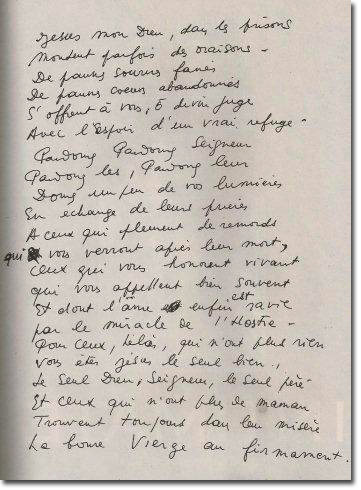 Jesus mon Dieu, dans les prisons
Montent parfois des oraisons -
De pauvres sourires fanés
De pauvres coeurs abandonnés
S'offrent à vous, ô divin juge
Avec l'Espoir d'un vrai refuge -
Pardong Pardong Seigneur
Pardong les, Pardong leur
Dong un peu de vos lumières
En echange de leurs prières
A ceux qui pleurent de remords
qui vous verront après leur mort,
Ceux qui vous honorent vivant
qui vous appellent bien souvent
Et dont l'âme enfin est ravie
par le miracle de l'Hostie -
Pour ceux, hélàs, qui n'ont plus rien
Vous êtes Jésus le seul bien.,
Le seul Dieu, Seigneur, le seul père
Et ceux qui n'ont plus de maman
Trouvent toujours dans leur misère
La bonne Vierge au firmament.